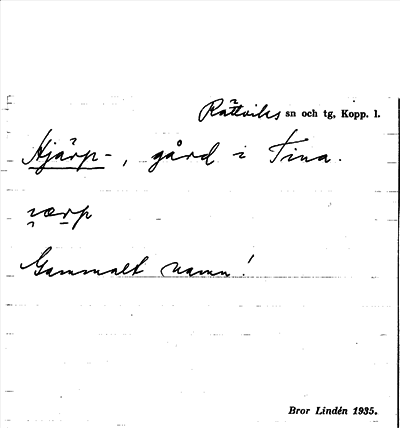 Rättviks sn och tg, Kopp. l.
Hjärp-, gård i Tina.
Gammalt namn!
Bror Lindén 1935.